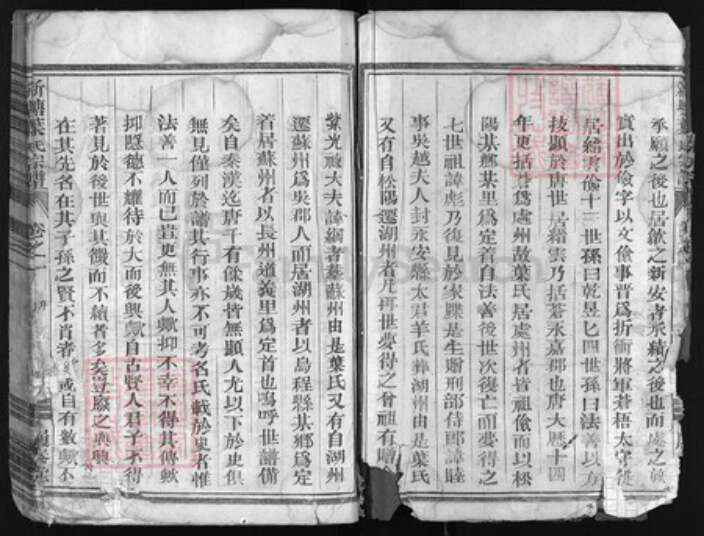 承願之後也居歙之新安者承績之後也而處之
實出於儉字以文儉事晋爲折衝將軍蒼梧太守
居縉雲儉十三世孫曰乾昱七四世孫曰法善以方
技顯於唐世居縉雲乃括蒼永嘉郡也唐大歷十四
年更括蒼爲處州故葉氏居處州者皆祖儉而以松
陽某鄉某里爲定首自法善後世次復亡而夢得之
七世祖諱彪乃復見於家牒是生贈刑部侍郎諱睦
事吳越夫人封永安縣太君羊氏葬湖州由是葉氏
又有自松陽遷湖州者凡再世夢得之曾祖有贈金
紫光祿大夫諱綱者葬蘇州由是葉氏又有自湖州
遷蘇州爲吳郡人而居湖州者以烏程縣某鄉爲定
首居蘇州者以長州道義里爲定首也嗚呼世譜備
矣自秦漢迄唐千有餘歲皆無顯人尤以下於史俱
無見僅列於譜其行事亦不可考名氏載於史者惟
法善一人而已豈更無其人歟抑不幸不得其傳歟
抑隱德不耀待於大而後興歟自古賢人君子不得
著見於後世與其微而不績者多矣豈廢之與興
在其先名在其子孫之賢不肖者或自有數歟不
新塘葉氏宗譜
卷之一